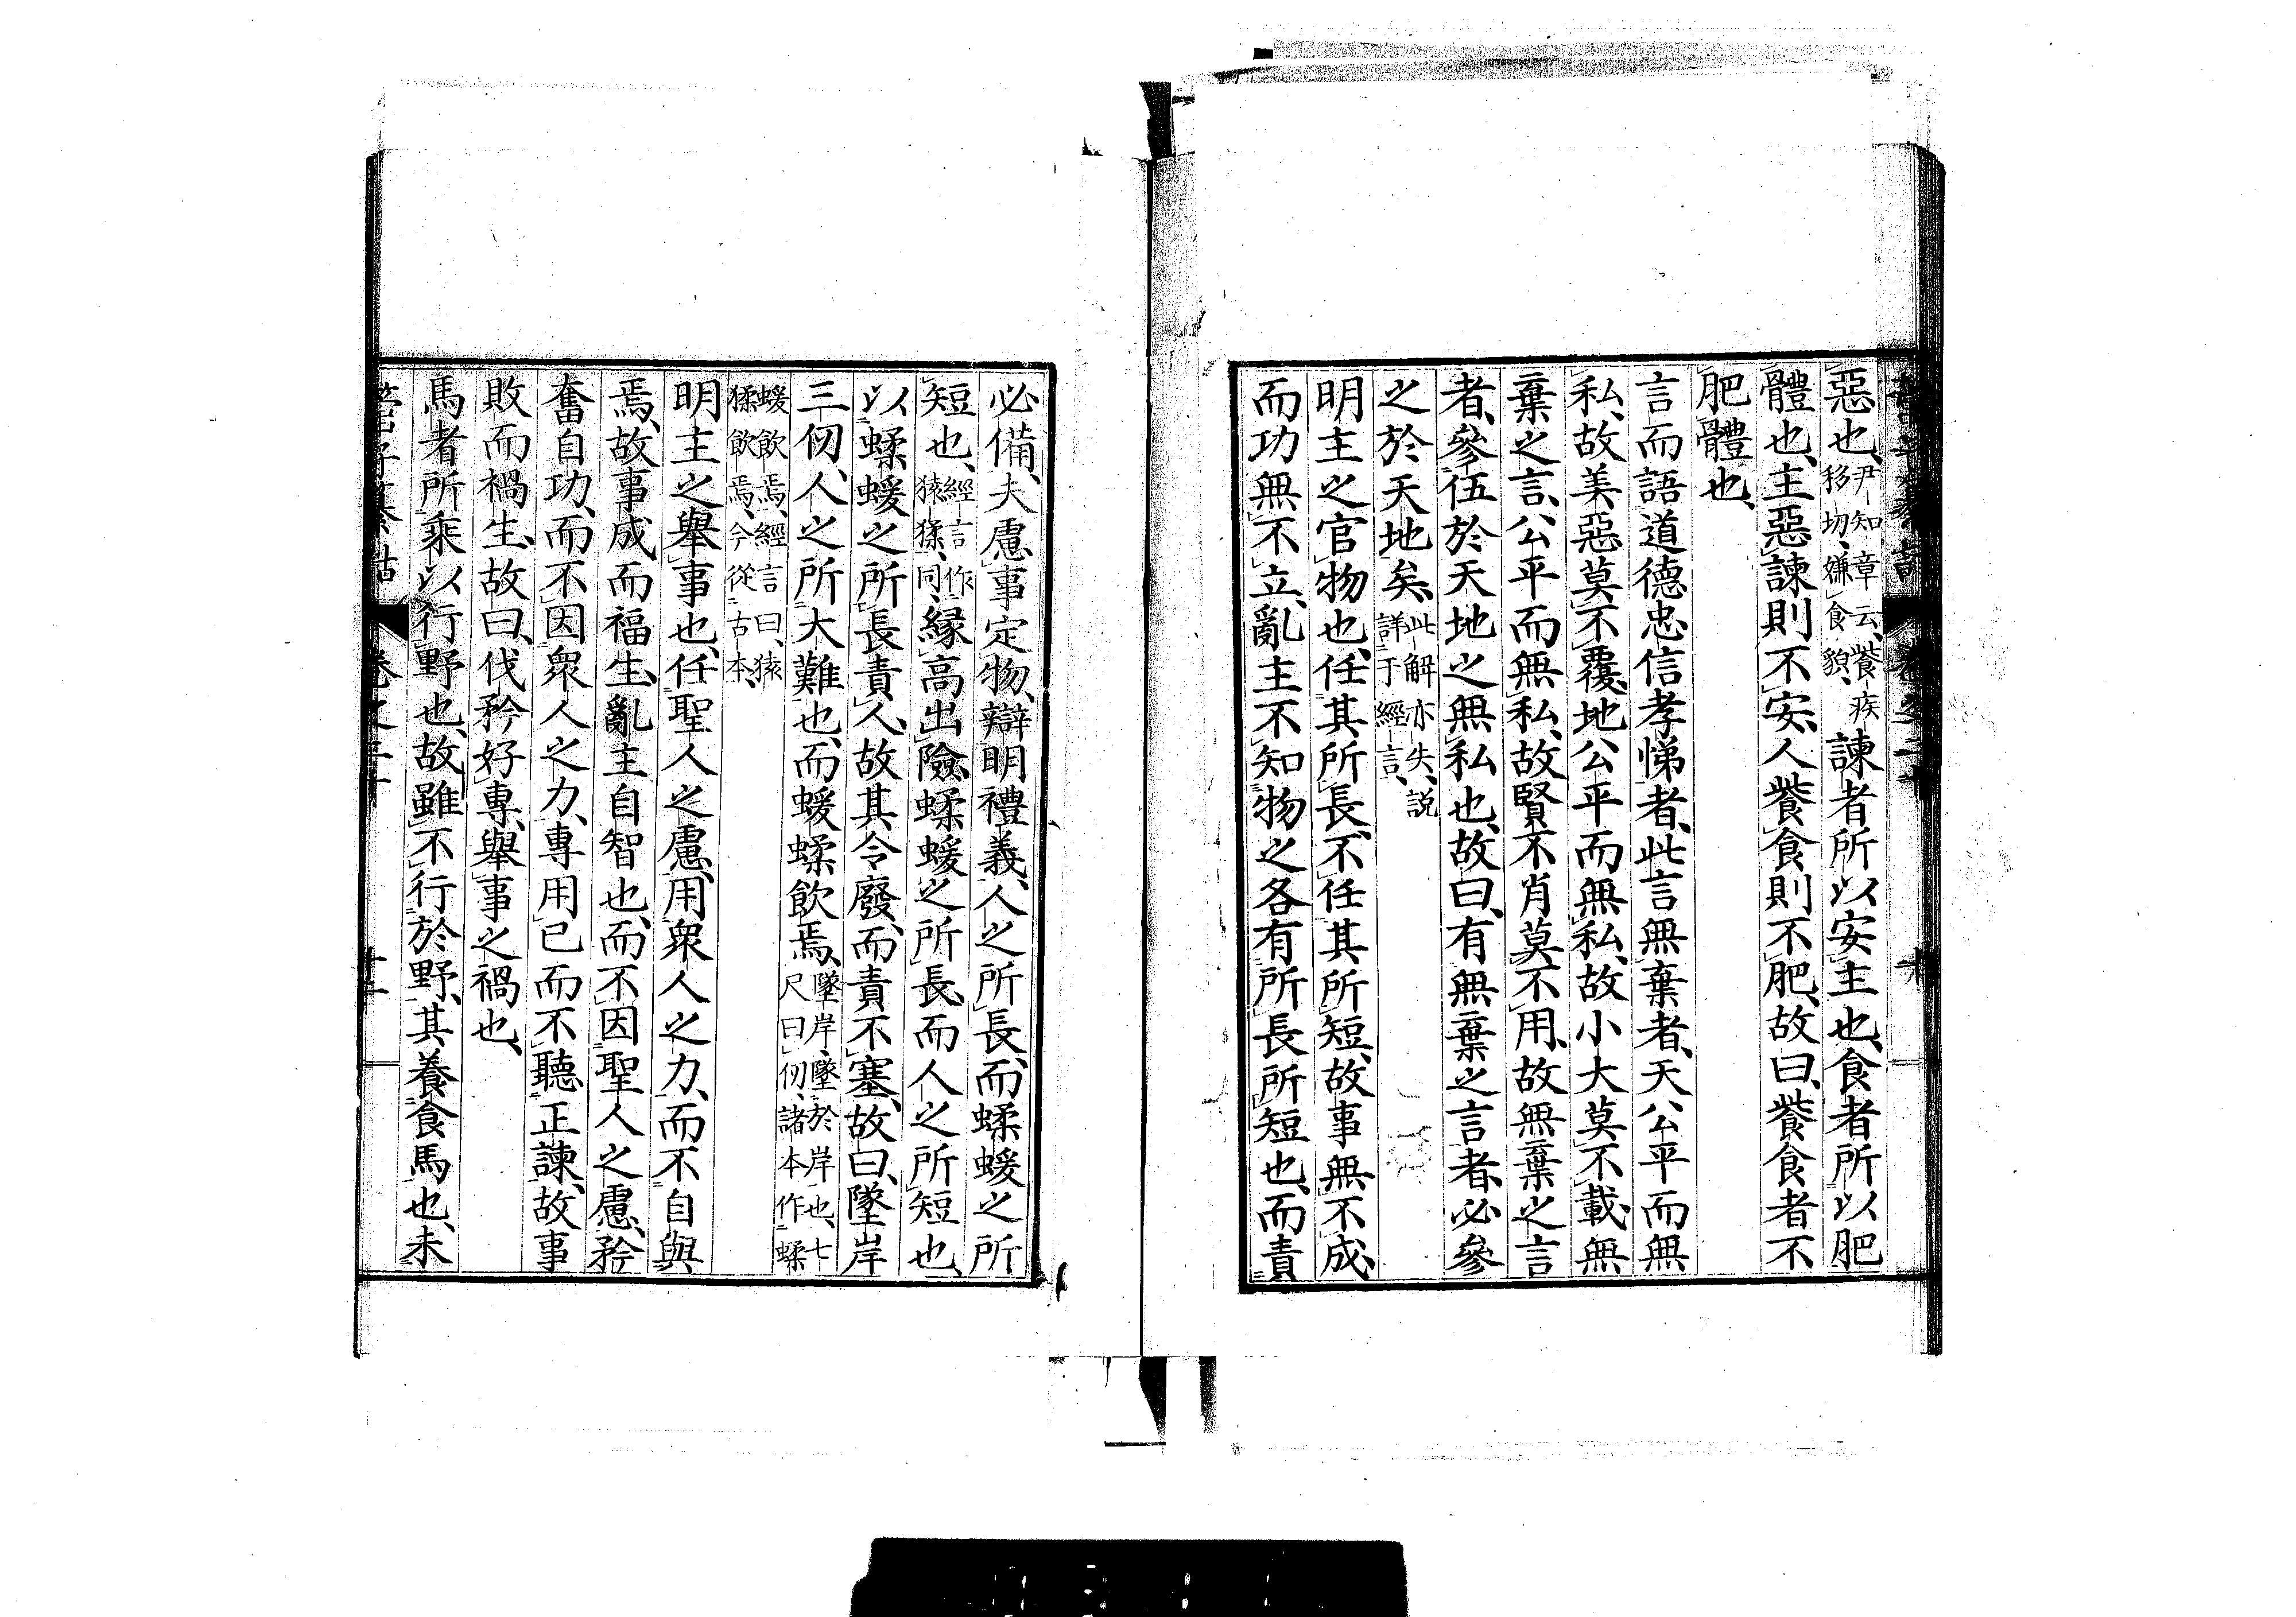 惡也、尹知章云、餥疾移切、嫌食貌、諫者所以安主也、食者所以肥
體也、主惡諫則不安、人餥食則不肥、故曰、餥食者不
肥體也、
言而語道德忠信孝悌者、此言無棄者、天公平而無
私、故美惡莫不覆、地公平而無私、故小大莫不載、無
棄之言、公平而無私、故賢不肖莫不用、故無棄之言
者、參伍於天地之無私也、故曰、有無棄之言者、必參
之於天地矣、此解亦失、説詳于經言、
明主之官物也、任其所長、不任其所短、故事無不成、
而功無不立、亂主不知物之各有所長所短也、而責
必備、夫慮事定物、辯明禮義、人之所長、而蝚蝯之所
短也、經言作猿猱、同、緣高出險、蝚蝯之所長、而人之所短也、
以蝚蝯之所長責人、故其令廢、而責不塞、故曰、墜岸
三仞、人之所大難也、而蝯蝚飲焉、墜岸、墜於岸也、七尺曰仞、諸本作蝚
蝯飲焉、經言曰、猿猱飲焉、今從古本、
明主之舉事也、任聖人之慮、用衆人之力、而不自與
焉、故事成而福生、亂主自智也、而不因聖人之慮、矜
奮自功、而不因衆人之力、專用已而不聽正諫、故事
敗而禍生、故曰、伐矜好專、舉事之禍也、
馬者所乘以行野也、故雖不行於野、其養食馬也、未
管子纂詁 卷之二十